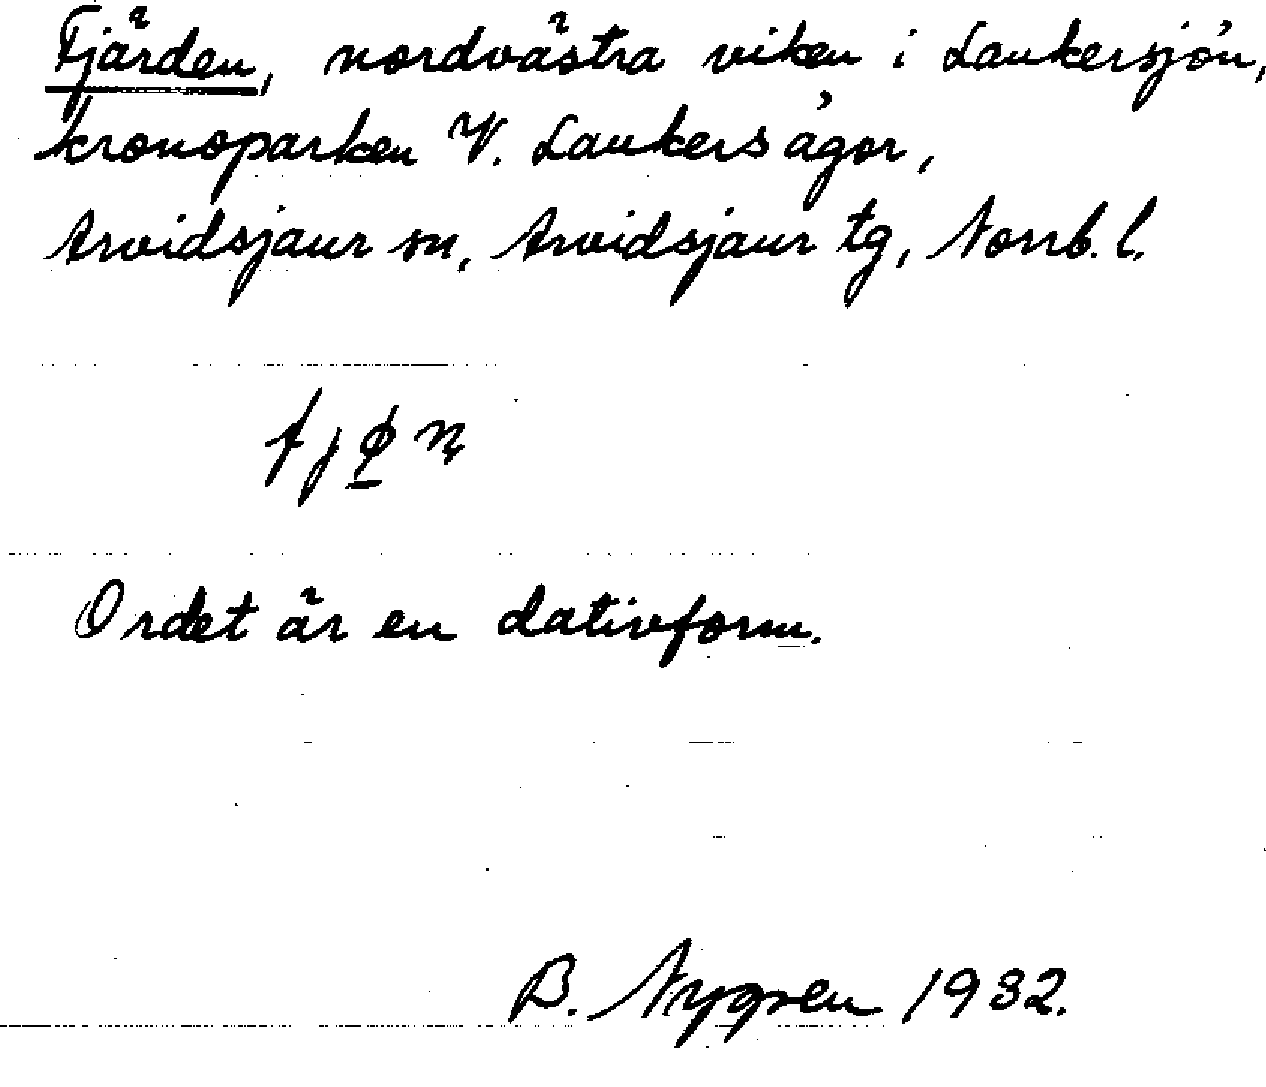 Fjärden, nordvästra viken i Laukersjön,
kronoparken V. Laukers ägor,
Arvidsjaur sn, Arvidsjaur tg, Norrb. l.
Ordet är en dativform.
B. Nygren 1932.